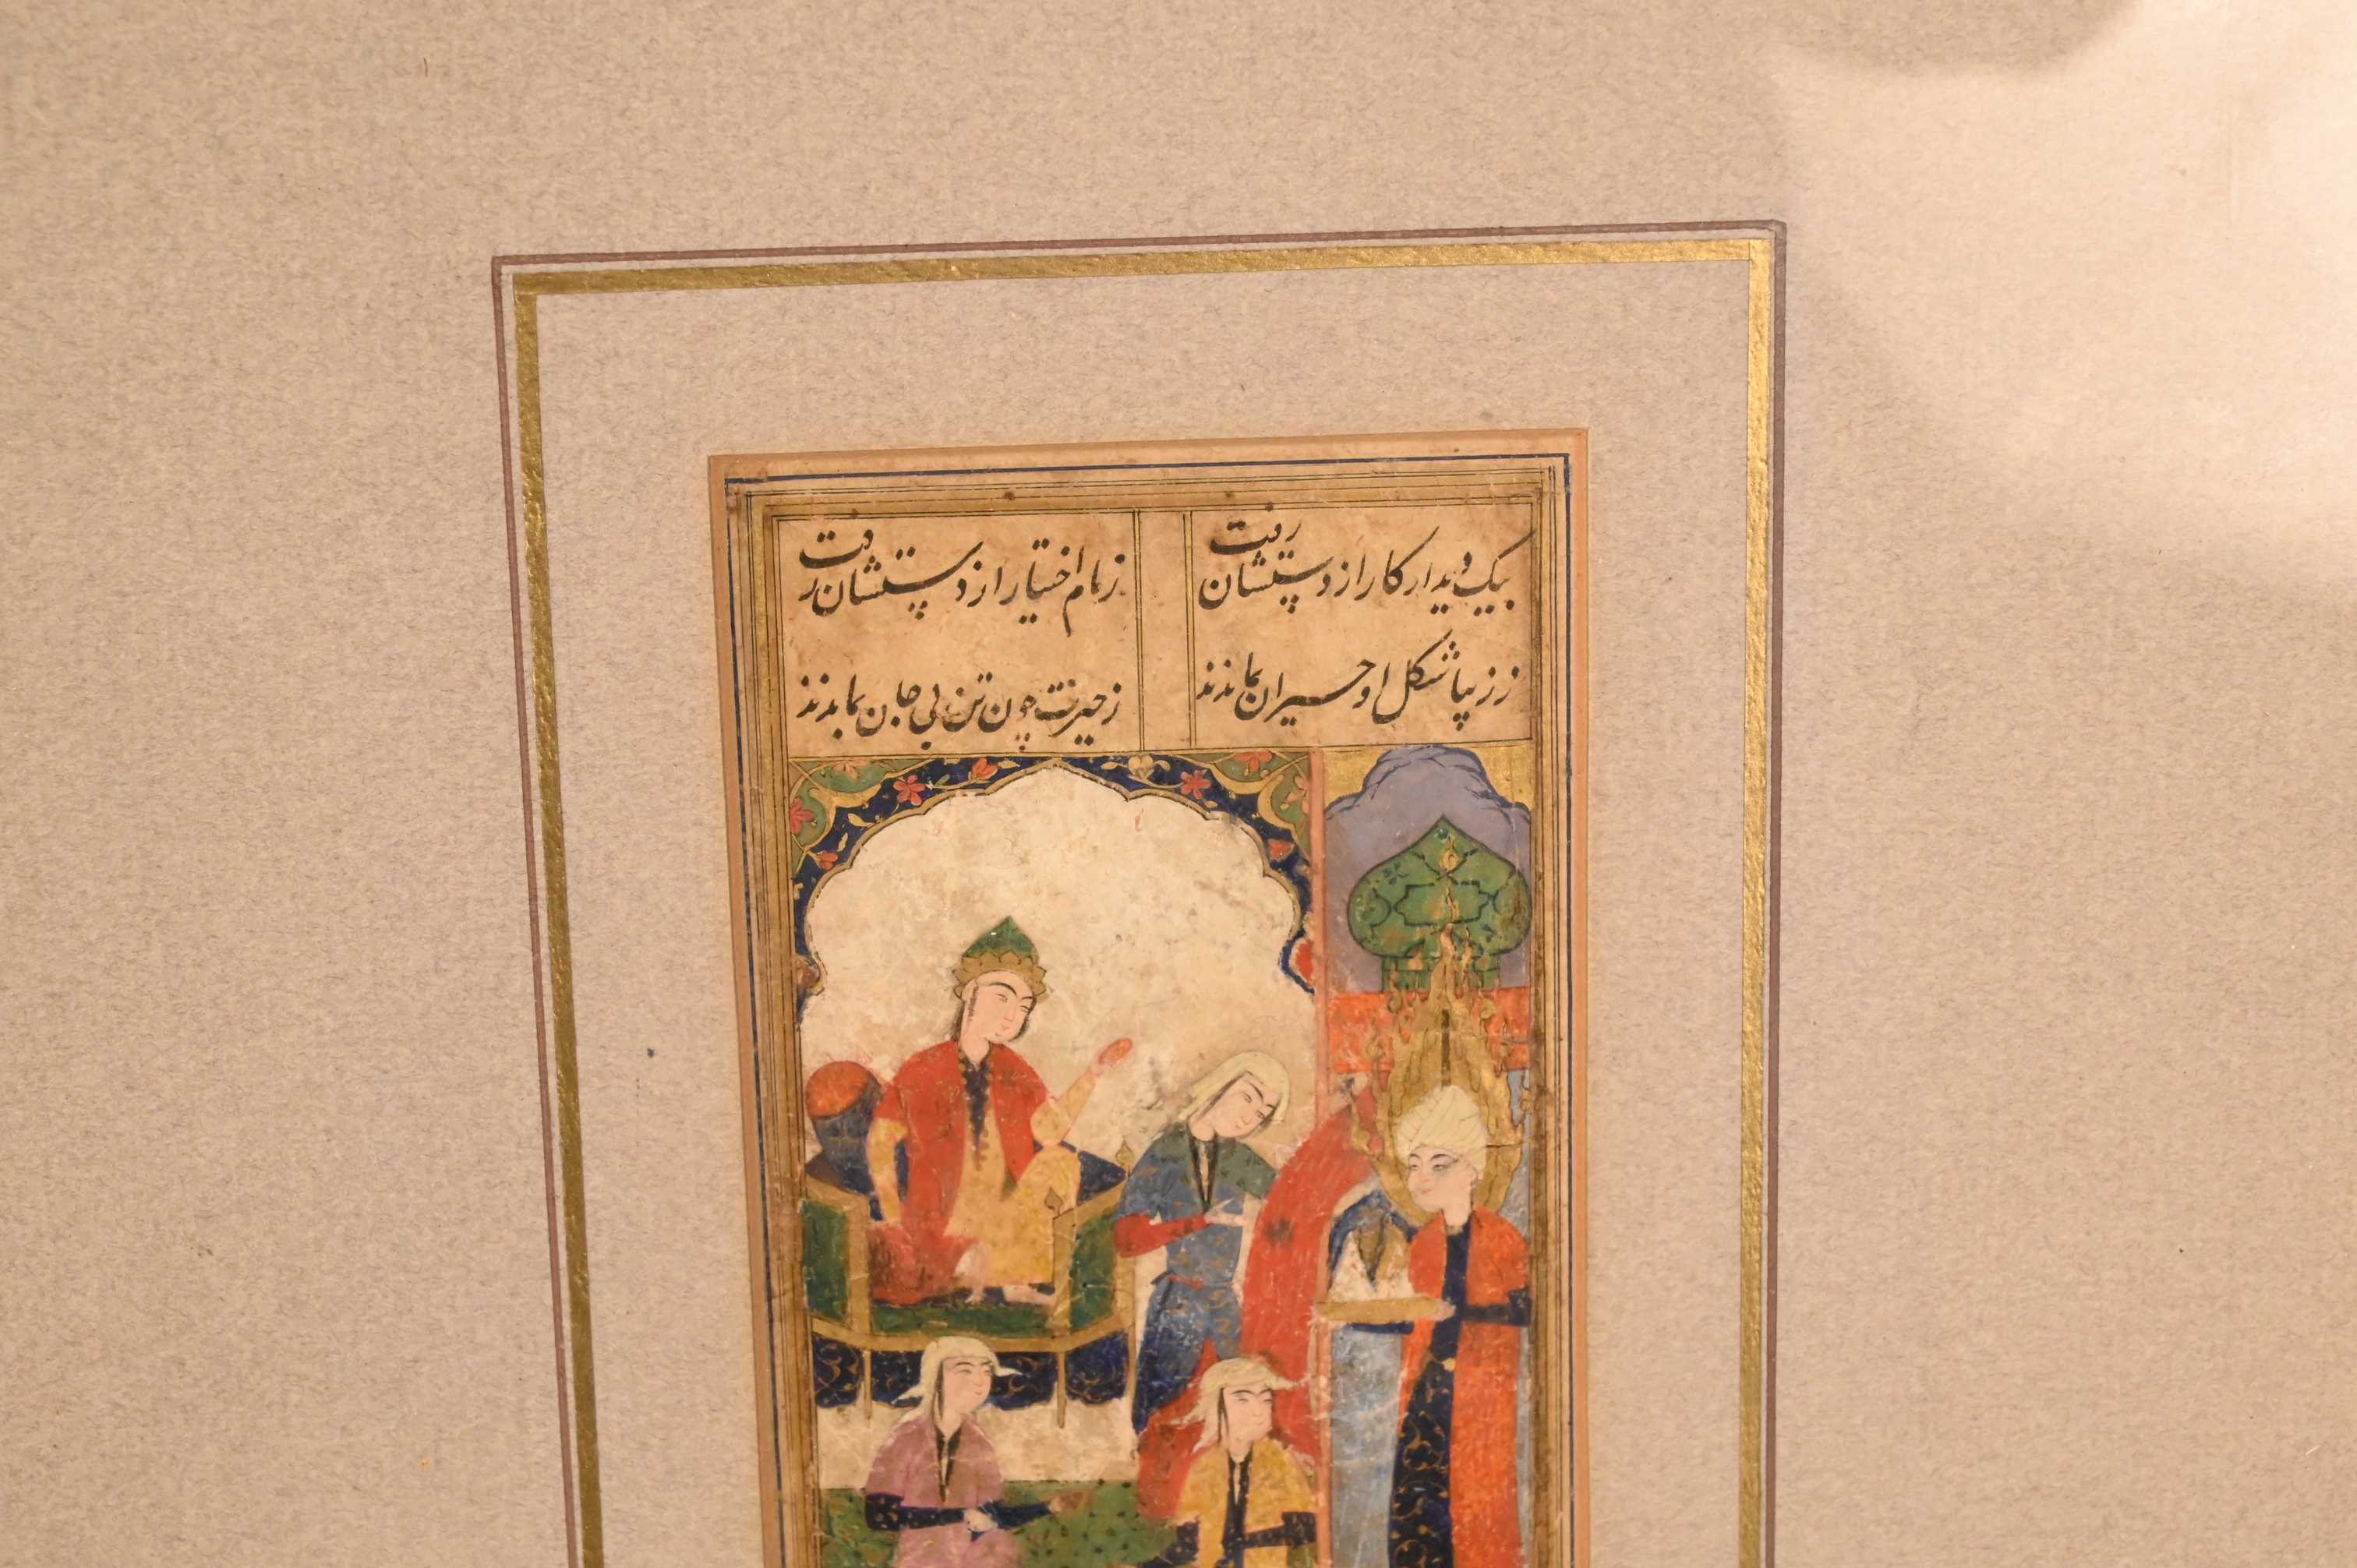 بیک دیدار کار از دستشان رفت
زمام اختیار از دستشان رفت
ز زیبا شکل او حیران بماندند
ز حیرت چون تن بی جان بماندند